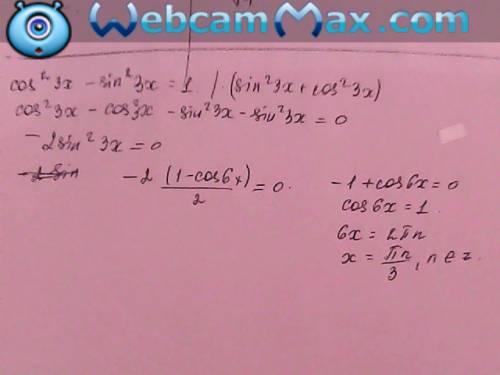 WebcamMax.com
cos²3x - sin²3x = 1 / · (sin²3x + cos²3x)
cos²3x - cos²3x - sin²3x - sin²3x = 0
-2sin²3x = 0
-2 sin
-2 (1-cos6x)/2 = 0.
-1 + cos6x = 0
cos6x = 1.
6x = 2πn
x = πn/3, n ∈ z.